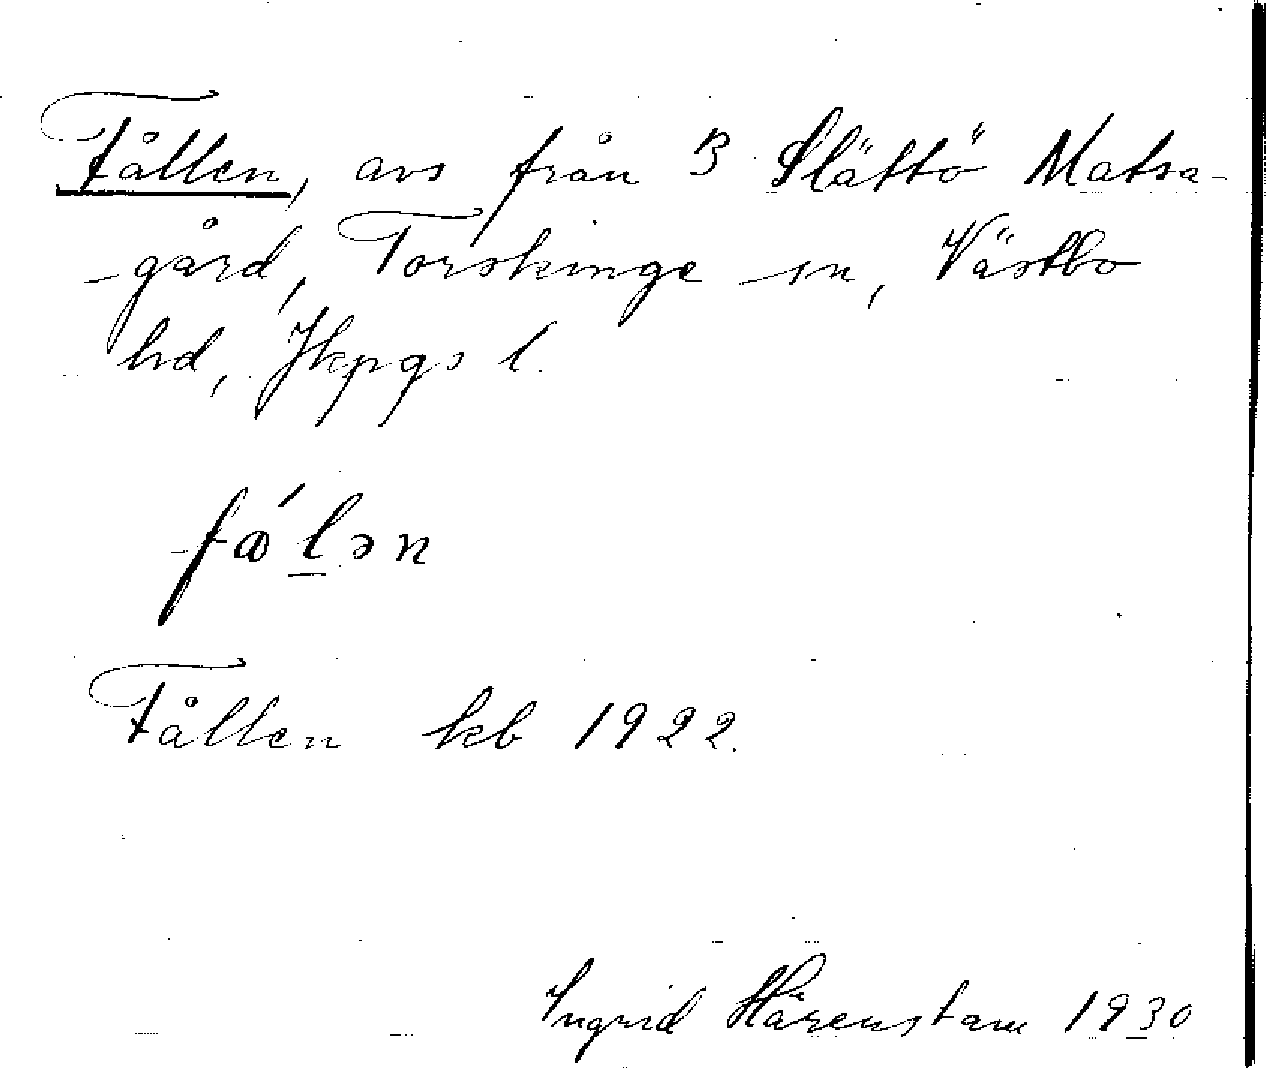 Fållen, avs från 3 Slättö Matsa-
gård, Torskinge sn, Västbo
hd, Jkpgs l.
fǽl̲ən
Fållen kb 1922.
Ingrid Härenstam 1930